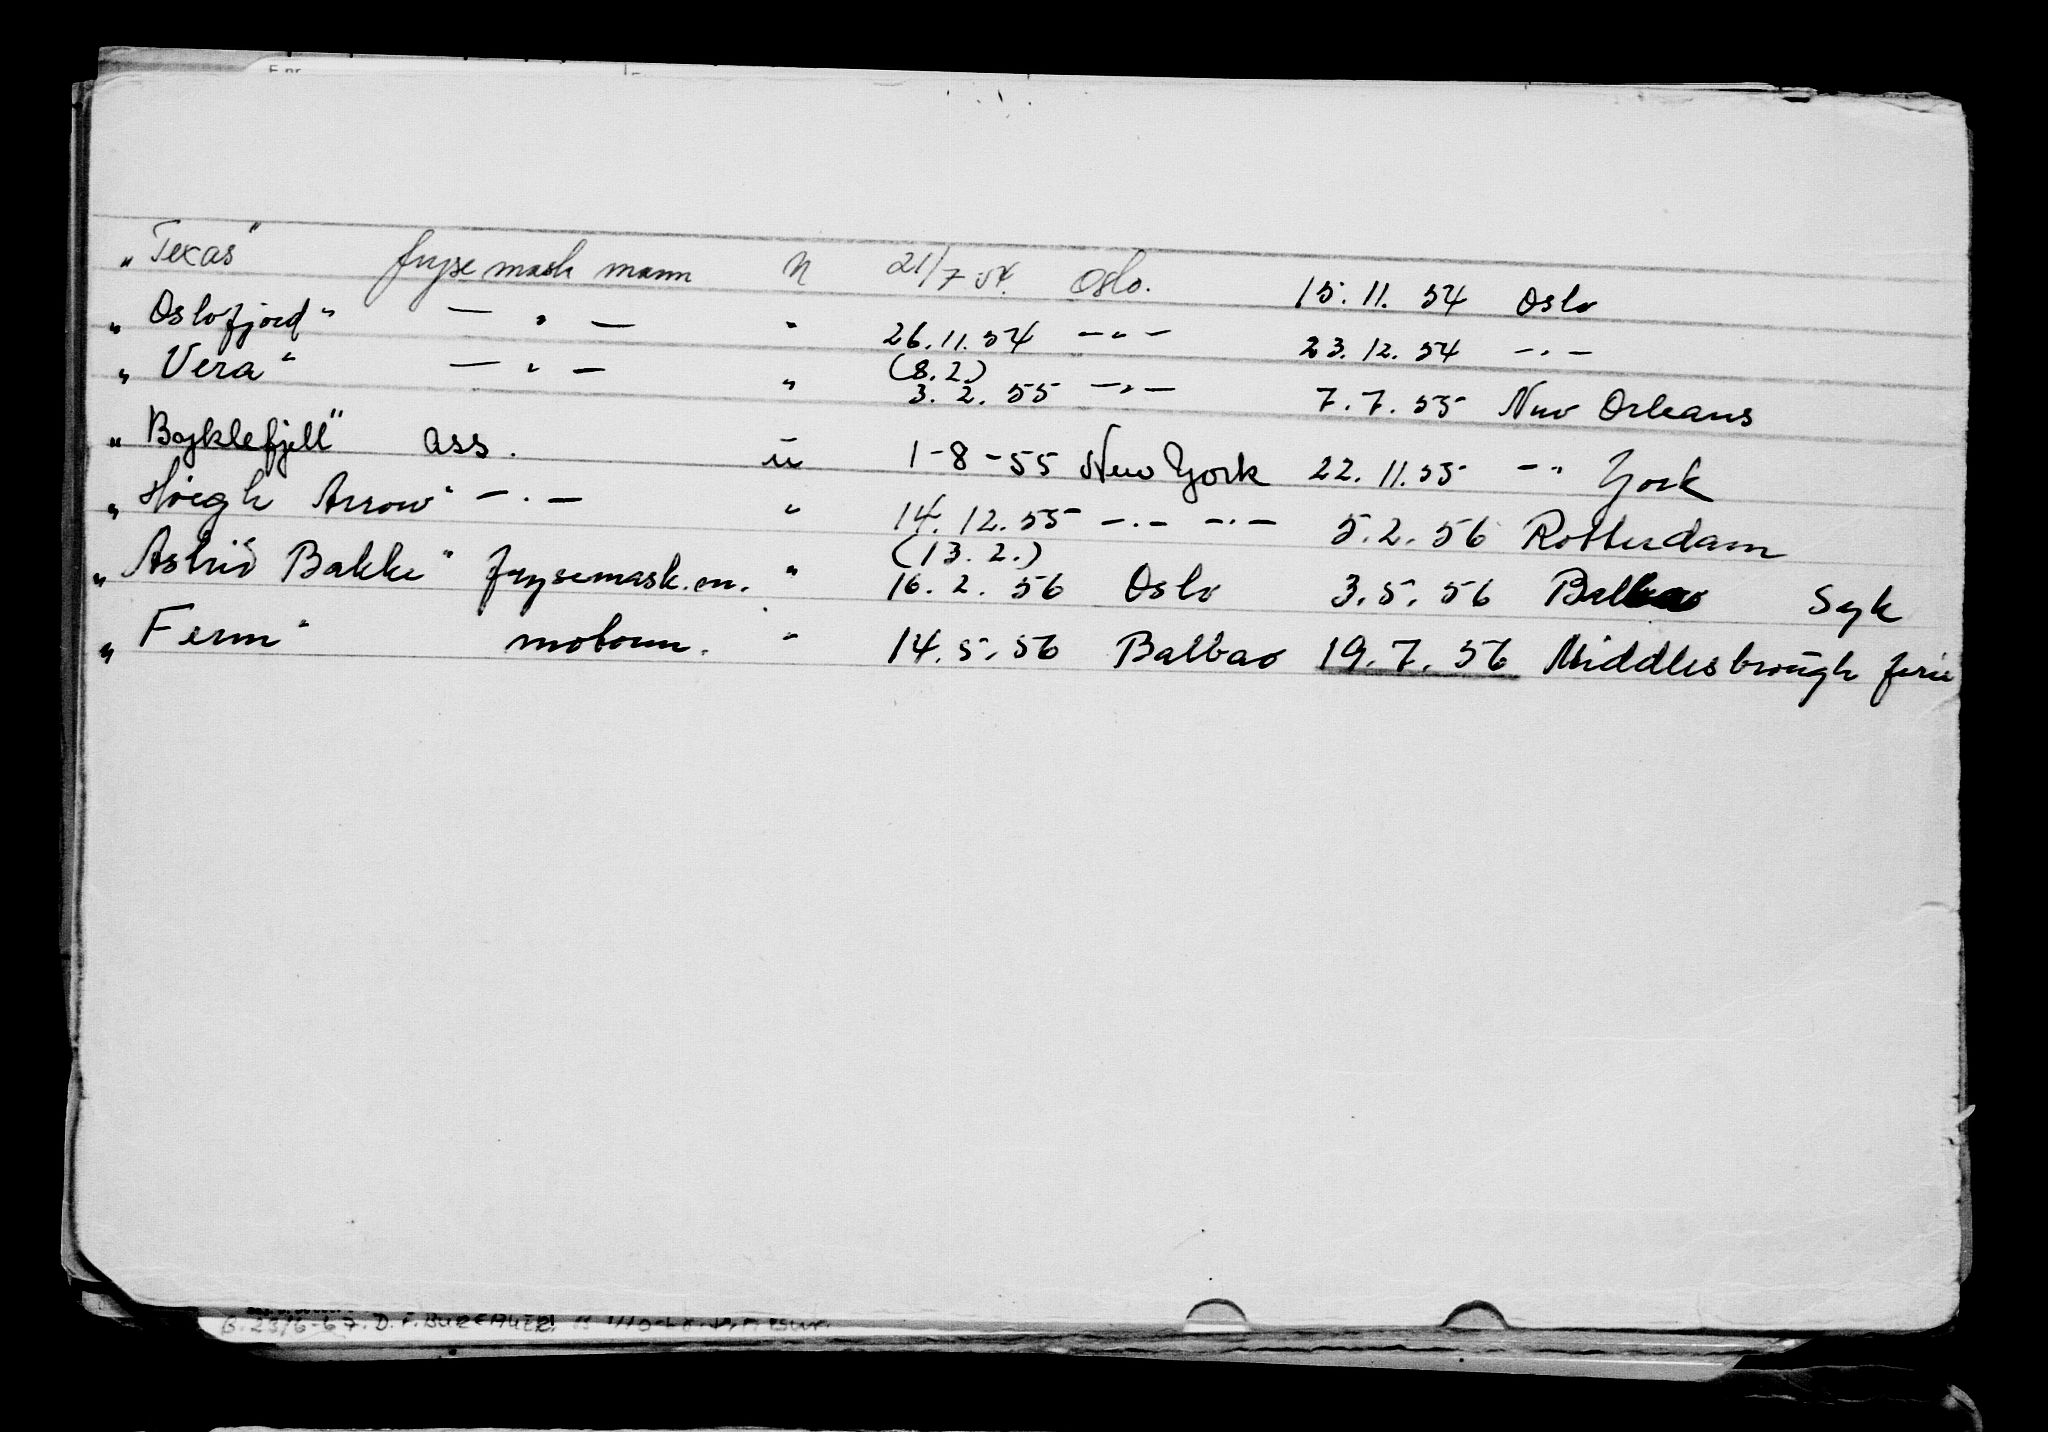 „Texas" fryse mask mann n 21/7 54. Oslo. 15.11.54 Oslo
„Oslofjord" — " — " 26.11.54 — " — 23.12.54 — " —
„Vera" — " — " (8.2.) 3.2.55 — " — 7.7.55 New Orleans
„Bøjklefjell" ass. u 1-8-55 New York 22.11.55 — " York
„Høegh Arrow" — " — " 14.12.55 — " — — " — 5.2.56 Rotterdam
„Astrid Bakke" frysemask.m. " (13.2.) 16.2.56 Oslo 3.5.56 Balbao Syk
„Ferm" motorm. " 14.5.56 Balbao 19.7.56 Middlesbrough ferie